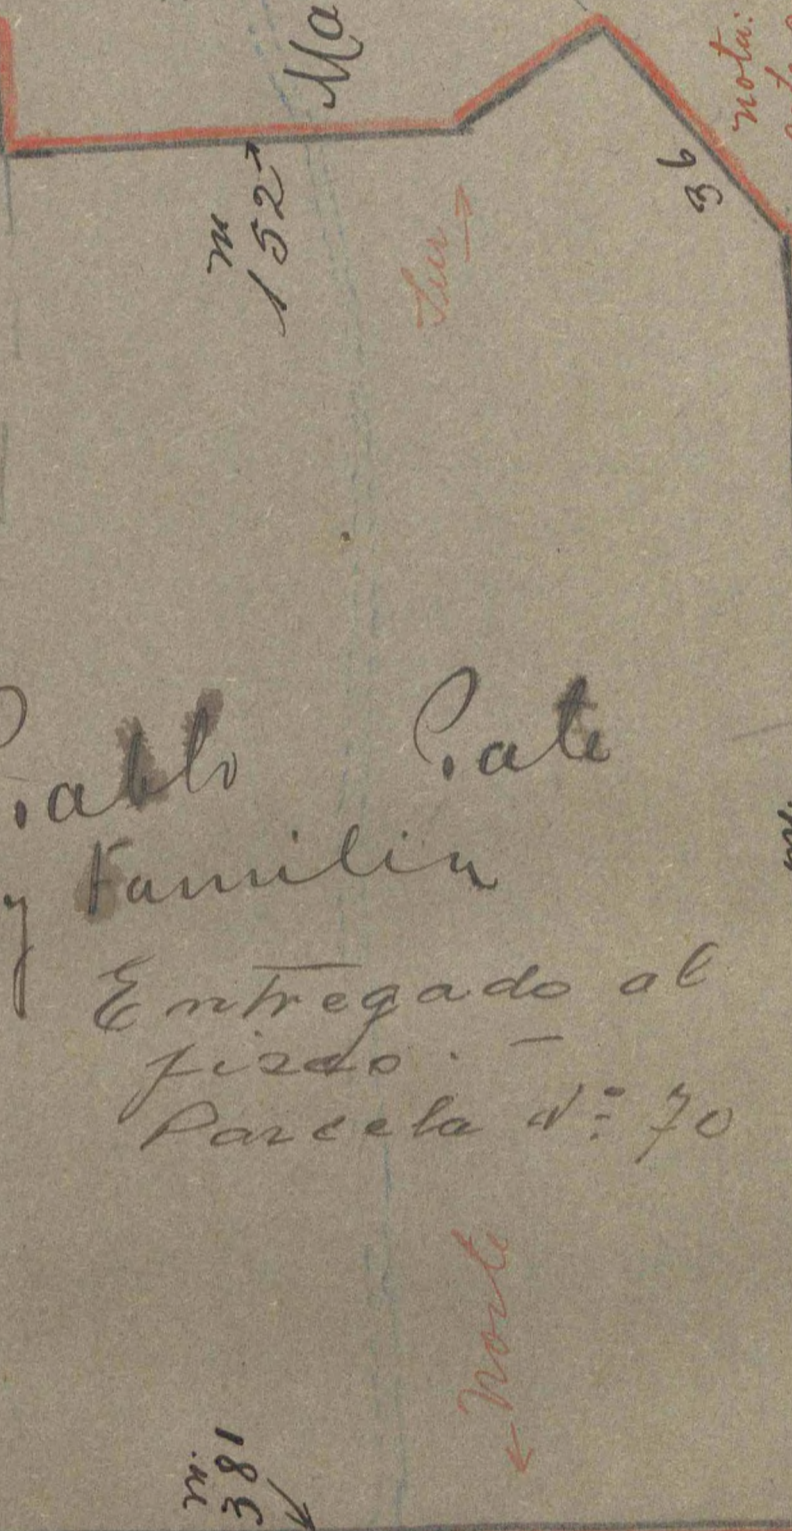 Ma
nota:
m
152
36
Sur
Pablo Pate
y Familia
Entregado al
fisco. —
Parcela Nº 70
Norte
m.
381